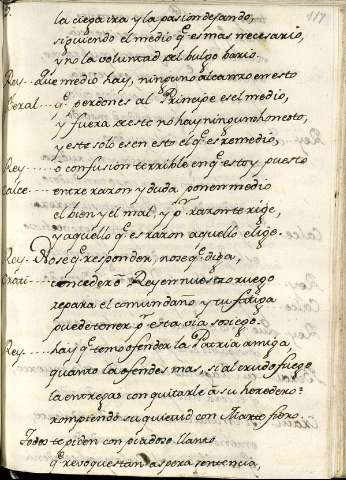 117
la ciega ira y la pasion dexando,
siguiendo el medio q̃ es mas necesario,
y no la voluntad del bulgo bario.
Rey -- que medio hay, ninguno alcanzo en esto
Ceral -- q̃ perdones al Principe es el medio,
y fuera de este no hay ningun honesto,
y este solo es en esto el q̃ es remedio,
Rey -- o confusion terrible en q̃ estoy puesto
Calce --- entre razon y duda ponen medio
el bien y el mal, y p^r razon te rige,
y aquello q̃ es razon aquello elige.
Rey - No se q̃ responder, no se q̃ diga,
concede o Rey en nuestro ruego
repara el comun daño y tu fatiga
puede tener p^r esta via sosiego.
Rey ---- hay q̃ temo ofender la Patria amiga
quanto la ofendes mas, si al crudo fuego
la entregas con quitarle a su heredero
rompiendo su quietud con Marte fiero.
Todos te piden con piadoso llanto
q̃ revoques tan aspera sentencia,